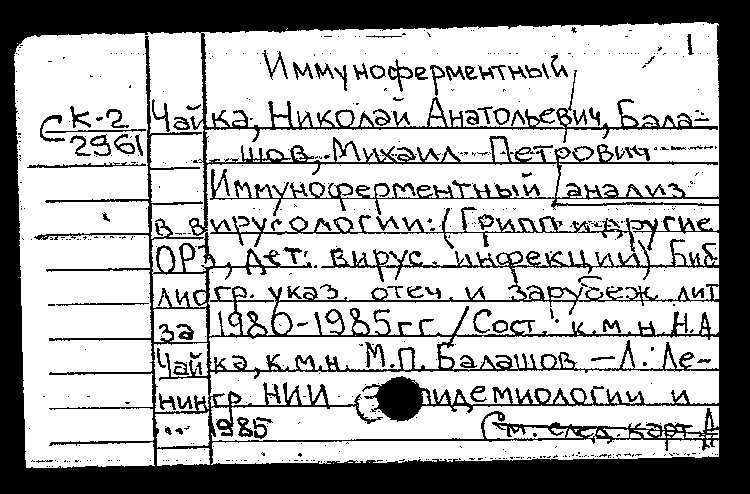 1
Иммуноферментный
С К-2
2961
Чайка, Николай Анатольевич, Бала-
шов, Михаил Петрович
Иммуноферментный анализ
в вирусологии: (Грипп и другие
ОРЗ, дет. вирус. инфекции) Биб
лиогр. указ. отеч. и зарубеж лит
за 1980-1985 гг. / Сост.: к.м.н. Н.А.
Чайка, к.м.н. М.П. Балашов – Л.: Ле-
нингр. НИИ эпидемиологии и
... 1985 (См. след. карт.